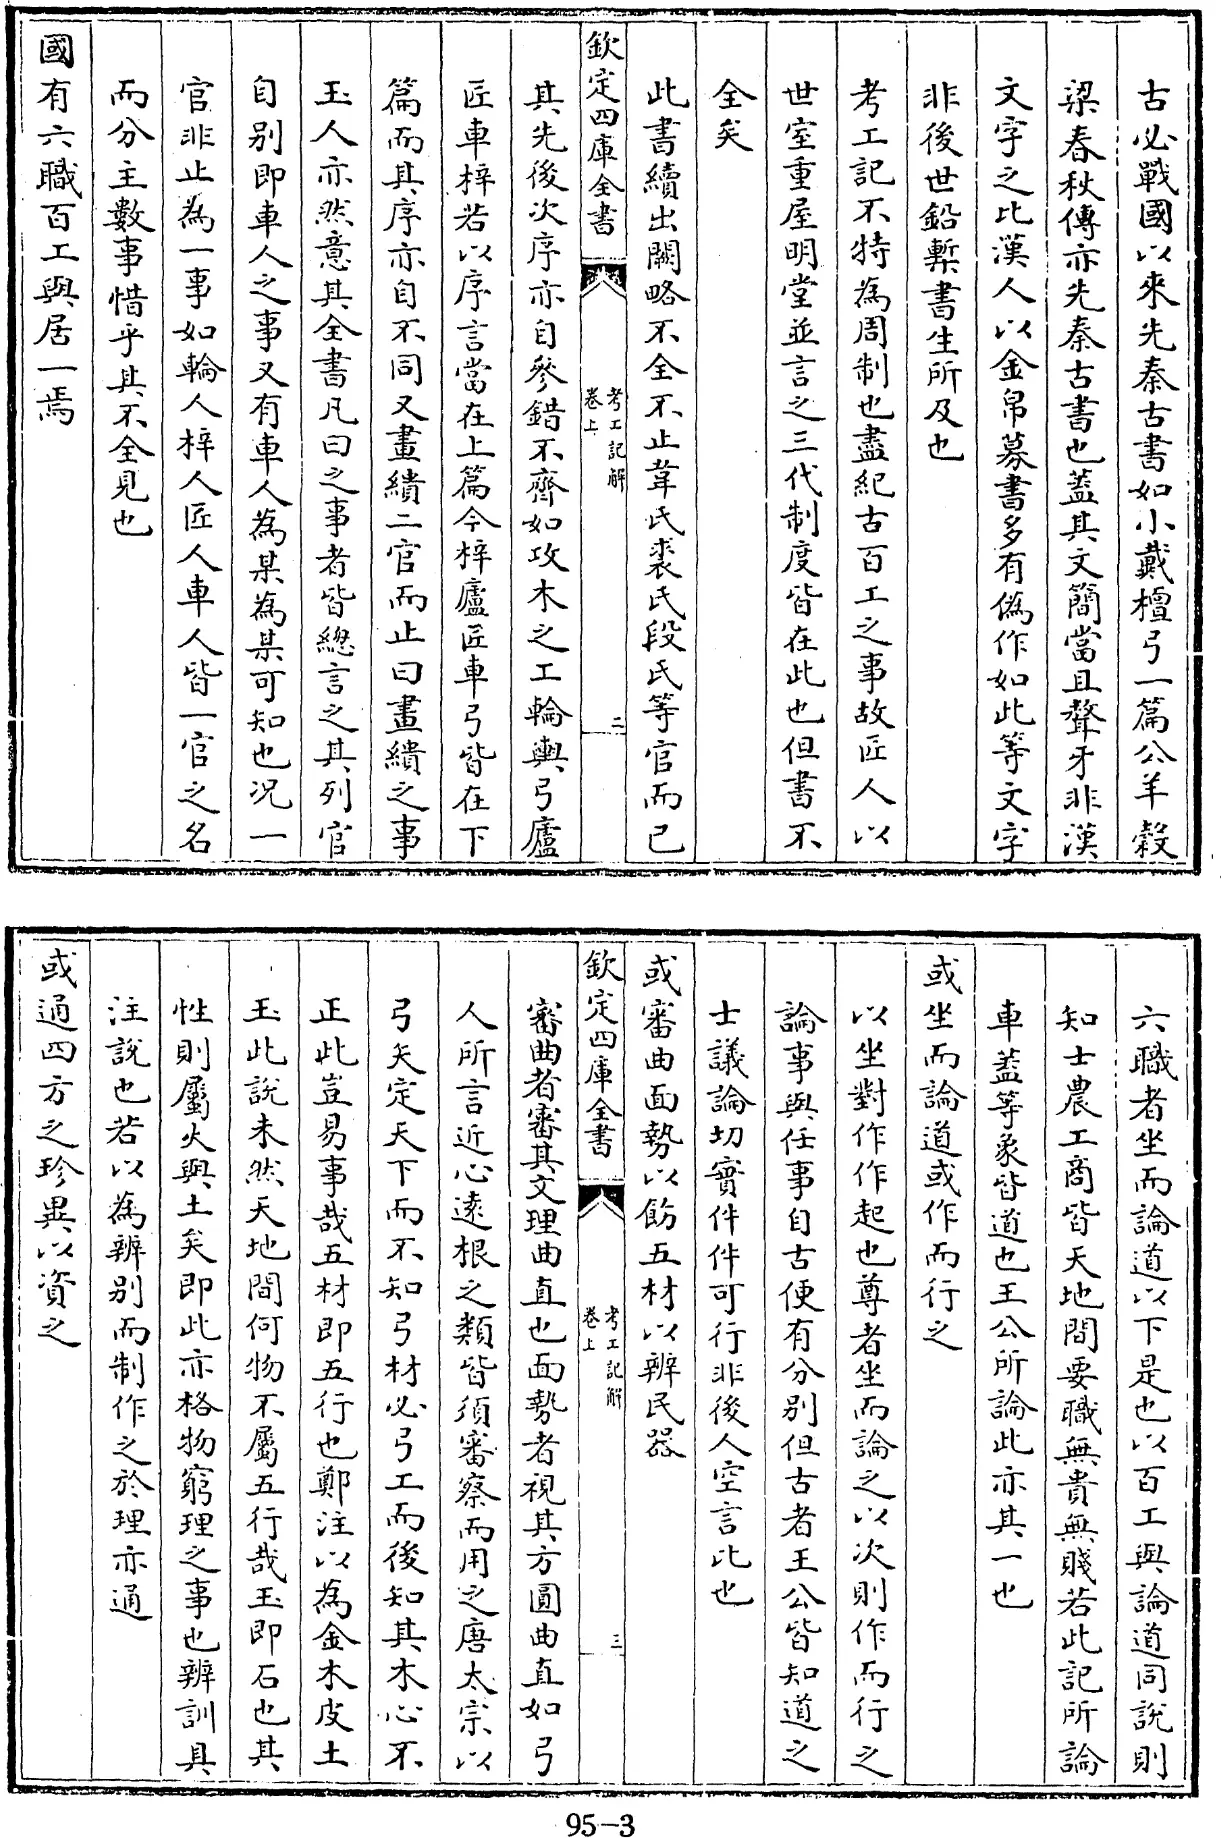 古必戰國以來先秦古書如小戴檀弓一篇公羊穀
梁春秋傳亦先秦古書也蓋其文簡當且聱牙非漢
文字之比漢人以金帛募書多有偽作如此等文字
非後世鉛槧書生所及也
考工記不特為周制也盡紀古百工之事故匠人以
世室重屋明堂並言之三代制度皆在此也但書不
全矣
此書續出闕略不全不止韋氏裘氏段氏等官而已
欽定四庫全書
考工記解
卷上
二
其先後次序亦自參錯不齊如攻木之工輪輿弓廬
匠車梓若以序言當在上篇今梓廬匠車弓皆在下
篇而其序亦自不同又畫繢二官而止曰畫繢之事
玉人亦然意其全書凡曰之事者皆總言之其列官
自別即車人之事又有車人為某為某可知也況一
官非止為一事如輪人梓人匠人車人皆一官之名
而分主數事惜乎其不全見也
國有六職百工與居一焉
六職者坐而論道以下是也以百工與論道同說則
知士農工商皆天地間要職無貴無賤若此記所論
車蓋等象皆道也王公所論此亦其一也
或坐而論道或作而行之
以坐對作作起也尊者坐而論之以次則作而行之
論事與任事自古便有分別但古者王公皆知道之
士議論切實件件可行非後人空言比也
或審曲面勢以飭五材以辨民器
欽定四庫全書
考工記解
卷上
三
審曲者審其文理曲直也面勢者視其方圓曲直如弓
人所言近心遠根之類皆須審察而用之唐太宗以
弓矢定天下而不知弓材必弓工而後知其木心不
正此豈易事哉五材即五行也鄭注以為金木皮土
玉此說未然天地間何物不屬五行哉玉即石也其
性則屬火與土矣即此亦格物窮理之事也辨訓具
注說也若以為辨別而制作之於理亦通
或通四方之珍異以資之
95-3